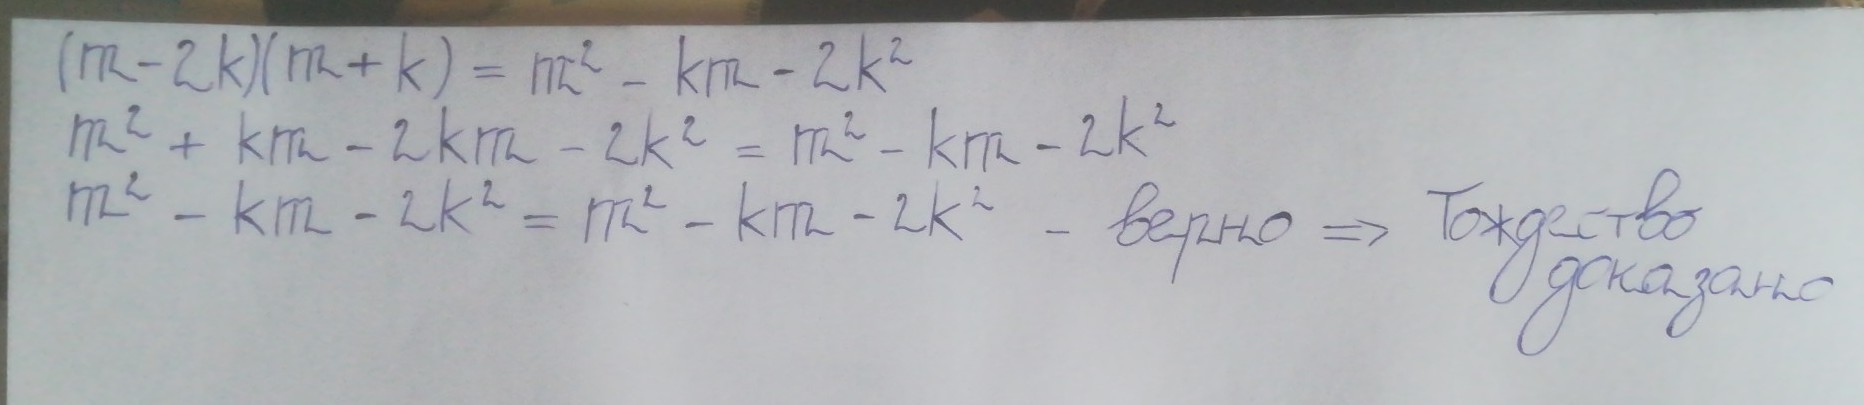 (m-2k)(m+k) = m² - km - 2k²
m² + km - 2km - 2k² = m² - km - 2k²
m² - km - 2k² = m² - km - 2k² - верно => Тождество
доказано